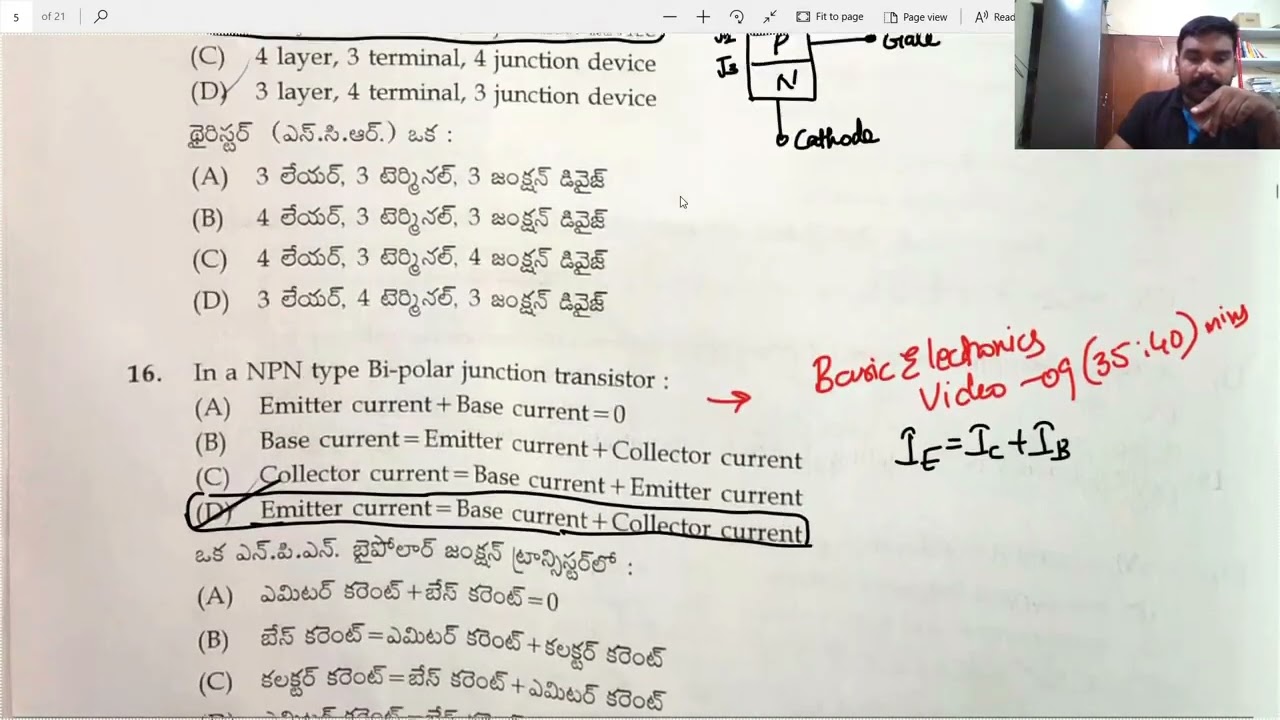 5 of 21 Fit to page Page view Read
(C) 4 layer, 3 terminal, 4 junction device
(D) 3 layer, 4 terminal, 3 junction device
థైరిస్టర్ (ఎస్.సి.ఆర్.) ఒక :
(A) 3 లేయర్, 3 టెర్మినల్, 3 జంక్షన్ డివైజ్
(B) 4 లేయర్, 3 టెర్మినల్, 3 జంక్షన్ డివైజ్
(C) 4 లేయర్, 3 టెర్మినల్, 4 జంక్షన్ డివైజ్
(D) 3 లేయర్, 4 టెర్మినల్, 3 జంక్షన్ డివైజ్
P
Gate
J3
N
Cathode
16. In a NPN type Bi-polar junction transistor :
(A) Emitter current + Base current = 0
(B) Base current = Emitter current + Collector current
(C) Collector current = Base current + Emitter current
(D) Emitter current = Base current + Collector current
Basic Electronics
Video - 09 (35:40) mins
IE = IC + IB
ఒక ఎన్.పి.ఎన్. బైపోలార్ జంక్షన్ ట్రాన్సిస్టర్‌లో :
(A) ఎమిటర్ కరెంట్ + బేస్ కరెంట్ = 0
(B) బేస్ కరెంట్ = ఎమిటర్ కరెంట్ + కలక్టర్ కరెంట్
(C) కలక్టర్ కరెంట్ = బేస్ కరెంట్ + ఎమిటర్ కరెంట్